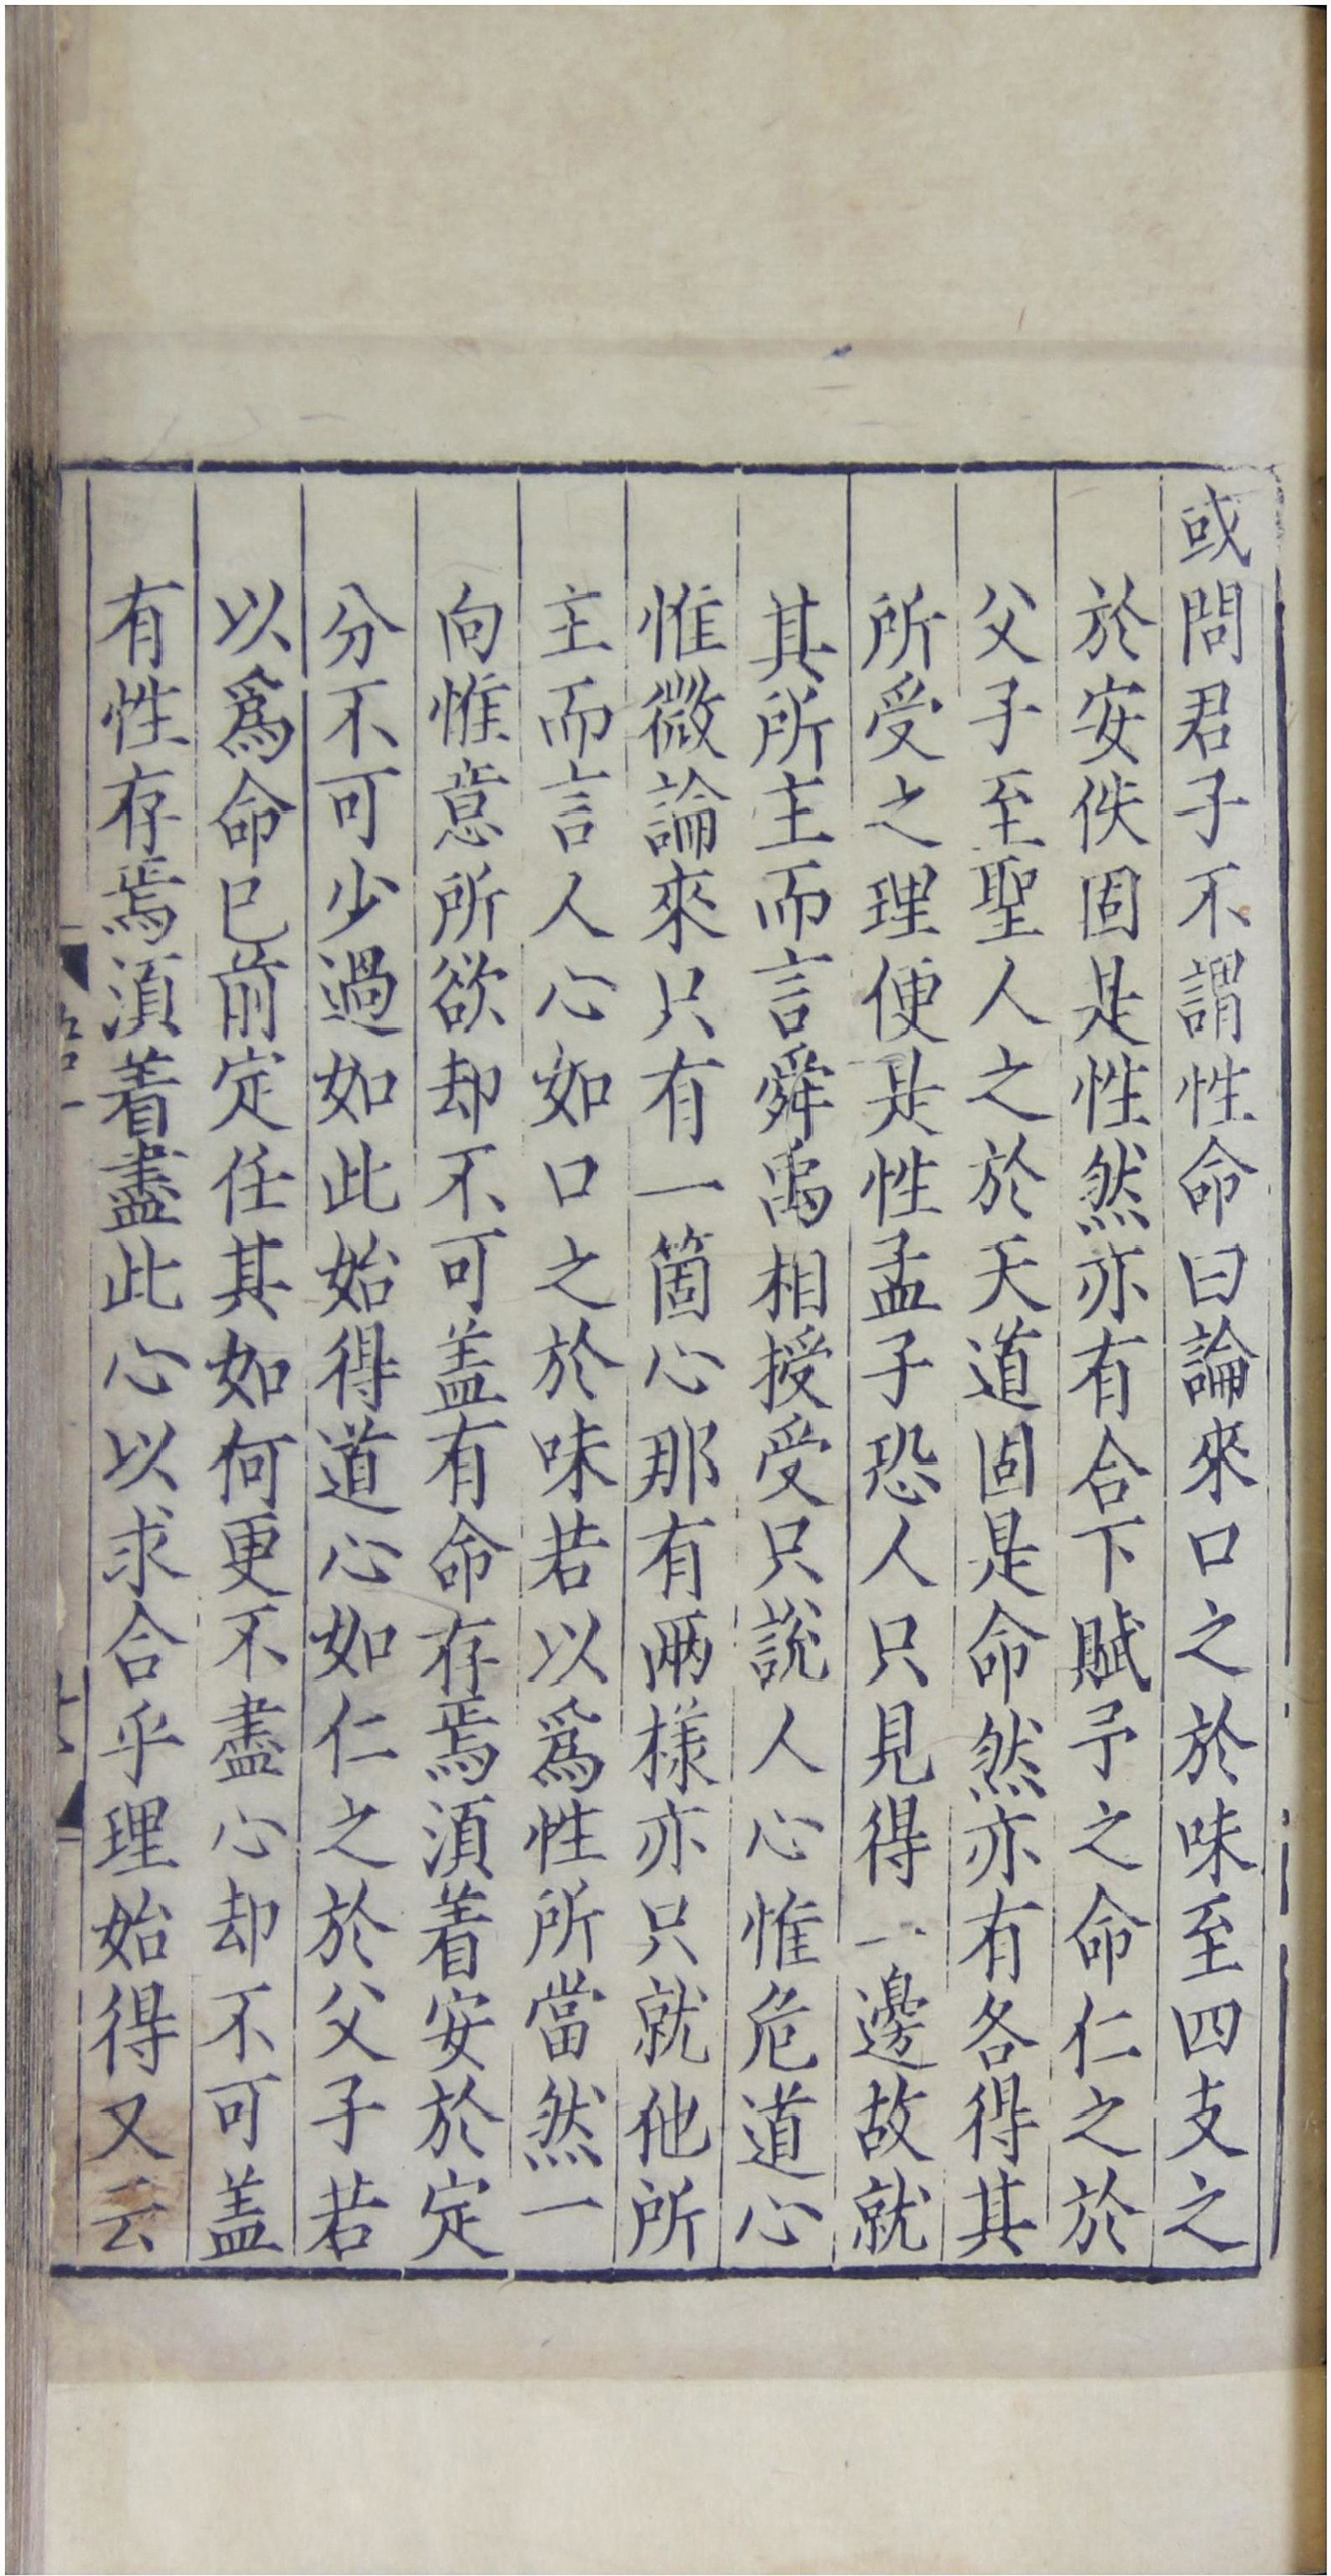 或問君子不謂性命曰論來口之於味至四支之
於安佚固是性然亦有合下賦予之命仁之於
父子至聖人之於天道固是命然亦有各得其
所受之理便是性孟子恐人只見得一邊故就
其所主而言舜禹相授受只說人心惟危道心
惟微論來只有一箇心那有兩樣亦只就他所
主而言人心如口之於味若以爲性所當然一
向惟意所欲却不可盖有命存焉湏着安於定
分不可少過如此始得道心如仁之於父子若
以爲命已前定任其如何更不盡心却不可盖
有性存焉湏着盡此心以求合乎理始得又云